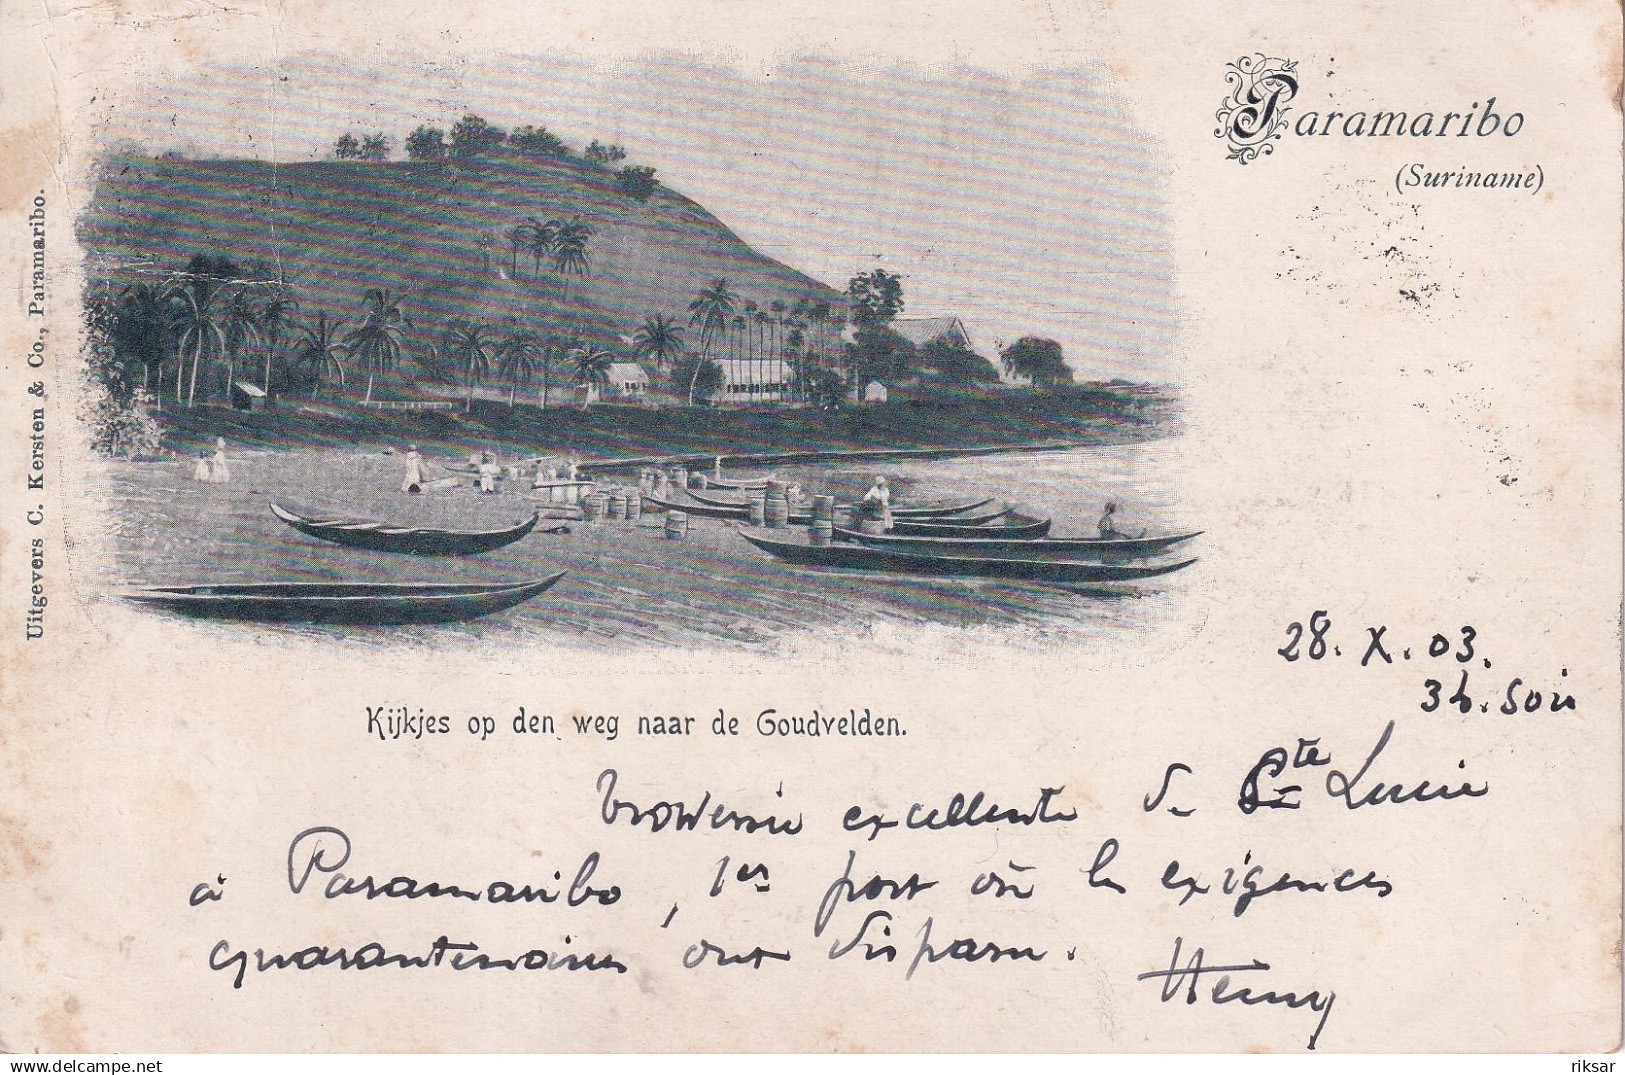 Paramaribo
(Suriname)
Uitgevers C. Kersten & Co., Paramaribo.
Kijkjes op den weg naar de Goudvelden.
28. X. 03.
3h. soir
Traversée excellente de Ste Lucie
à Paramaribo, 1er port où les exigences
quarantenaires ont disparu.
Henry
delcampe.net
riksar